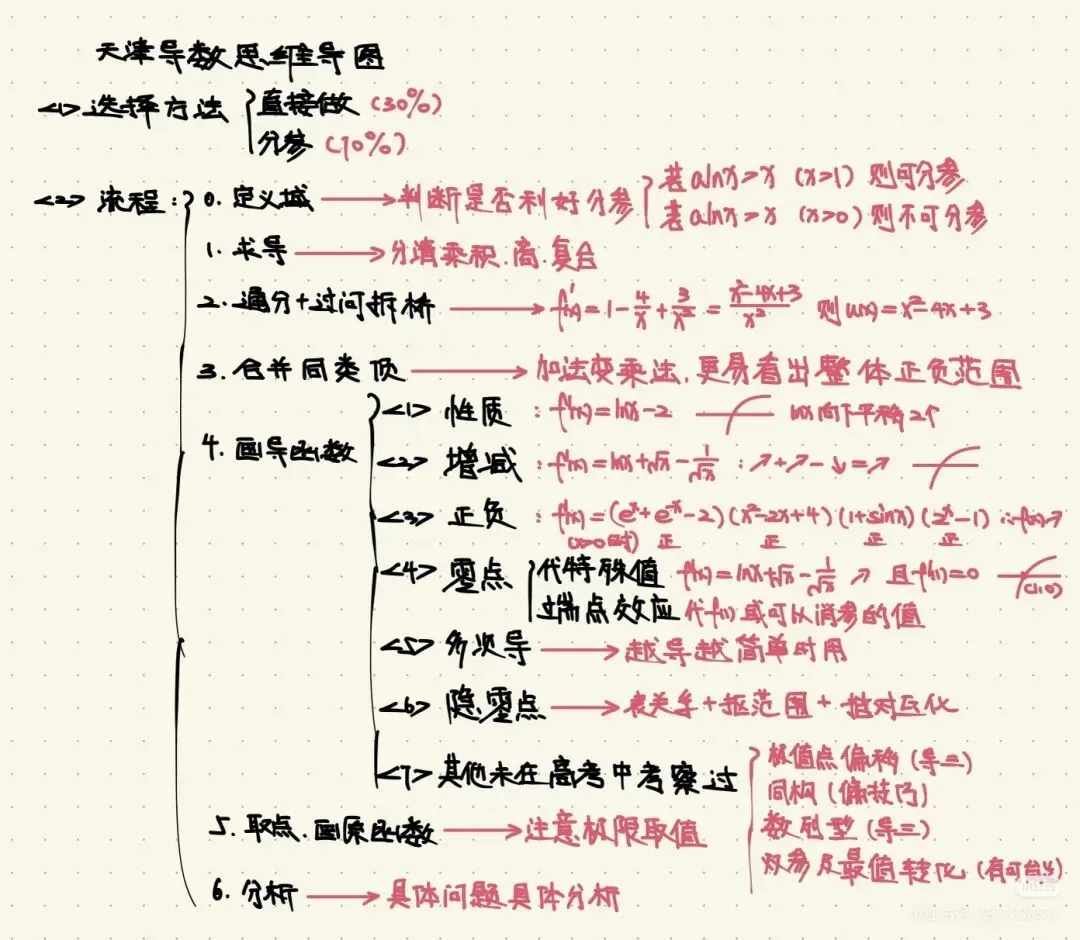 天津导数思维导图
<1> 选择方法 { 直接做 (30%)
分参 (70%)
<2> 流程: { 0. 定义域 → 判断是否利好分参 { 若alnx=x (x>1) 则可分参
若alnx=x (x>0) 则不可分参
1. 求导 → 分清乘积.商.复合
2. 通分+过河拆桥 → f'(x)=1-4/x+3/x²=(x²-4x+3)/x² 则u(x)=x²-4x+3
3. 合并同类项 → 加法变乘法.更易看出整体正负范围
4. 画导函数 { <1> 性质 : f'(x)=lnx-2 lnx向下平移2个
<2> 增减 : f'(x)=lnx+√x-1/√x : ↗+↗-↓=↗
<3> 正负 : f'(x)=(eˣ+e⁻ˣ-2)(x²-2x+4)(1+sinx)(2ˣ-1) ∴f(x)↗
(x>0时) 正 正 正 正
<4> 零点 { 代特殊值 f'(x)=lnx+√x-1/√x ↗ 且f'(1)=0 (1,0)
端点效应 代f(1)或可以消参的值
<5> 多次导 → 越导越简单时用
<6> 隐零点 → 表关系+抠范围+指对互化
<7> 其他未在高考中考察过 { 极值点偏移(导三)
同构(偏技巧)
数列型(导三)
双参及最值转化(有可能
5. 取点.画原函数 → 注意极限取值
6. 分析 → 具体问题具体分析